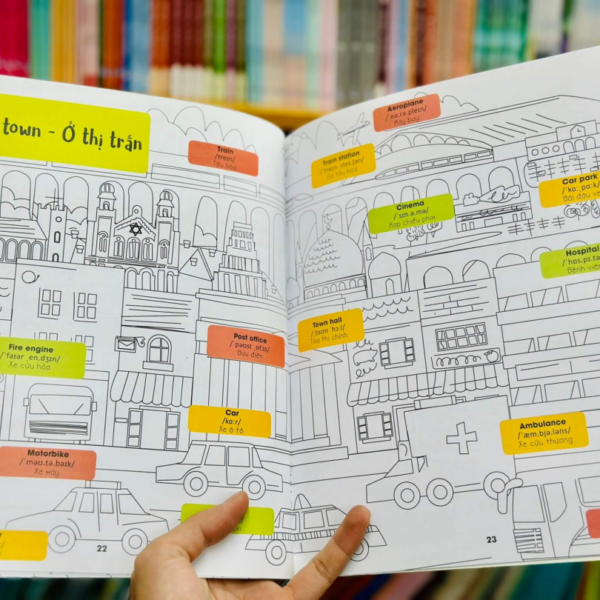 town - Ở thị trấn
Train
/treɪn/
Aeroplane
/ˈeə.rə.pleɪn/
Máy bay
Train station
Car park
/ˈkɑː ˌpɑːk/
Cinema
/ˈsɪn.ə.mə/
Rạp chiếu phim
Hospital
Bệnh viện
Town hall
/ˌtaʊn ˈhɔːl/
Tòa thị chính
Post office
/ˈpəʊst ˌɒf.ɪs/
Bưu điện
Fire engine
/ˈfaɪər ˌen.dʒɪn/
Xe cứu hỏa
Car
/kɑːr/
Xe ô tô
Ambulance
/ˈæm.bjə.ləns/
Xe cứu thương
Motorbike
/ˈməʊ.tə.baɪk/
Xe máy
22
23